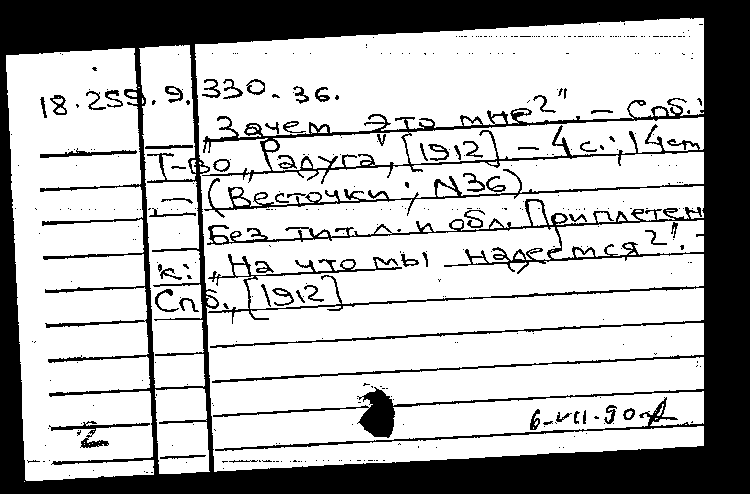 18.259.9.330.36.
„Зачем это мне?". – Спб.:
Т-во „Радуга", [1912]. – 4 с.; 14 cm
– (Весточки; N36).
Без тит. л. и обл. Приплетен
к: „На что мы надеемся?". –
Спб., [1912]
2
6-VII-90